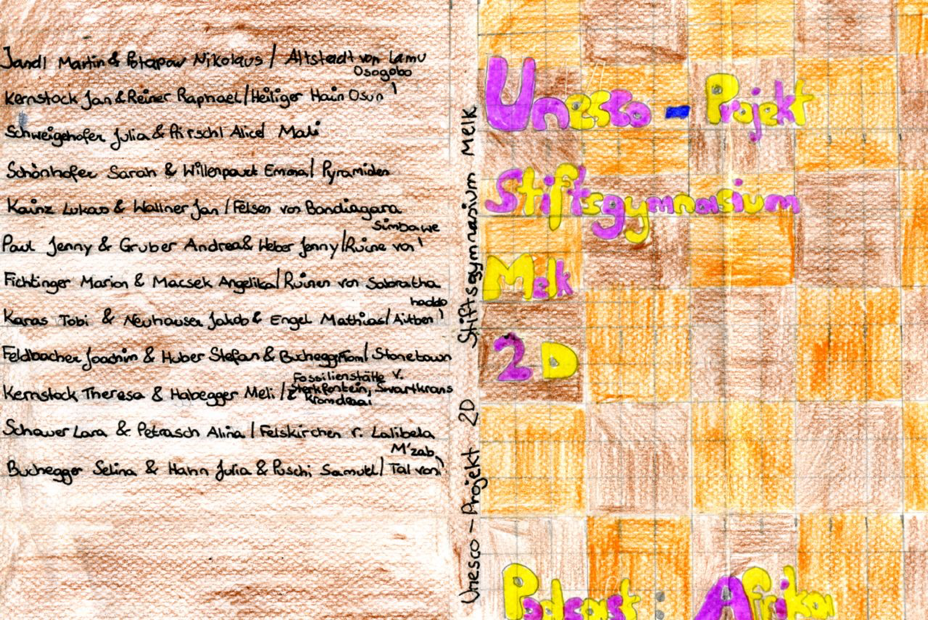 Jandl Martin & Potapow Nikolaus / Altstadt von Lamu
Osogobo
Kernstock Jan & Reiner Raphael / Heiliger Hain Osun
Schweigehofer Julia & Pirschl Alice / Mali
Schönhofer Sarah & Willenpart Emma / Pyramiden
Kainz Lukas & Wallner Jan / Felsen von Bandiagara
Simbawe
Paul Jenny & Gruber Andrea & Heber Jenny / Ruine von
Fichtinger Marion & Macsek Angelika / Ruinen von Sabratha
haddo
Karas Tobi & Neuhauser Jakob & Engel Mathias / Aitben
Feldbacher Joachim & Huber Stefan & Buchegger Tom / Stonetown
Fossilienstätte v.
Kernstock Theresa & Habegger Meli / Sterkfontein, Swartkrans
& Kromdraai
Schauer Lara & Petrasch Alina / Felskirchen v. Lalibela
M'zab
Buchegger Selina & Hahn Julia & Puschi Samuel / Tal von
Unesco - Projekt 2D Stiftsgymnasium Melk
Unesco - Projekt
Stiftsgymnasium
Melk
2D
Podcast: Afrika